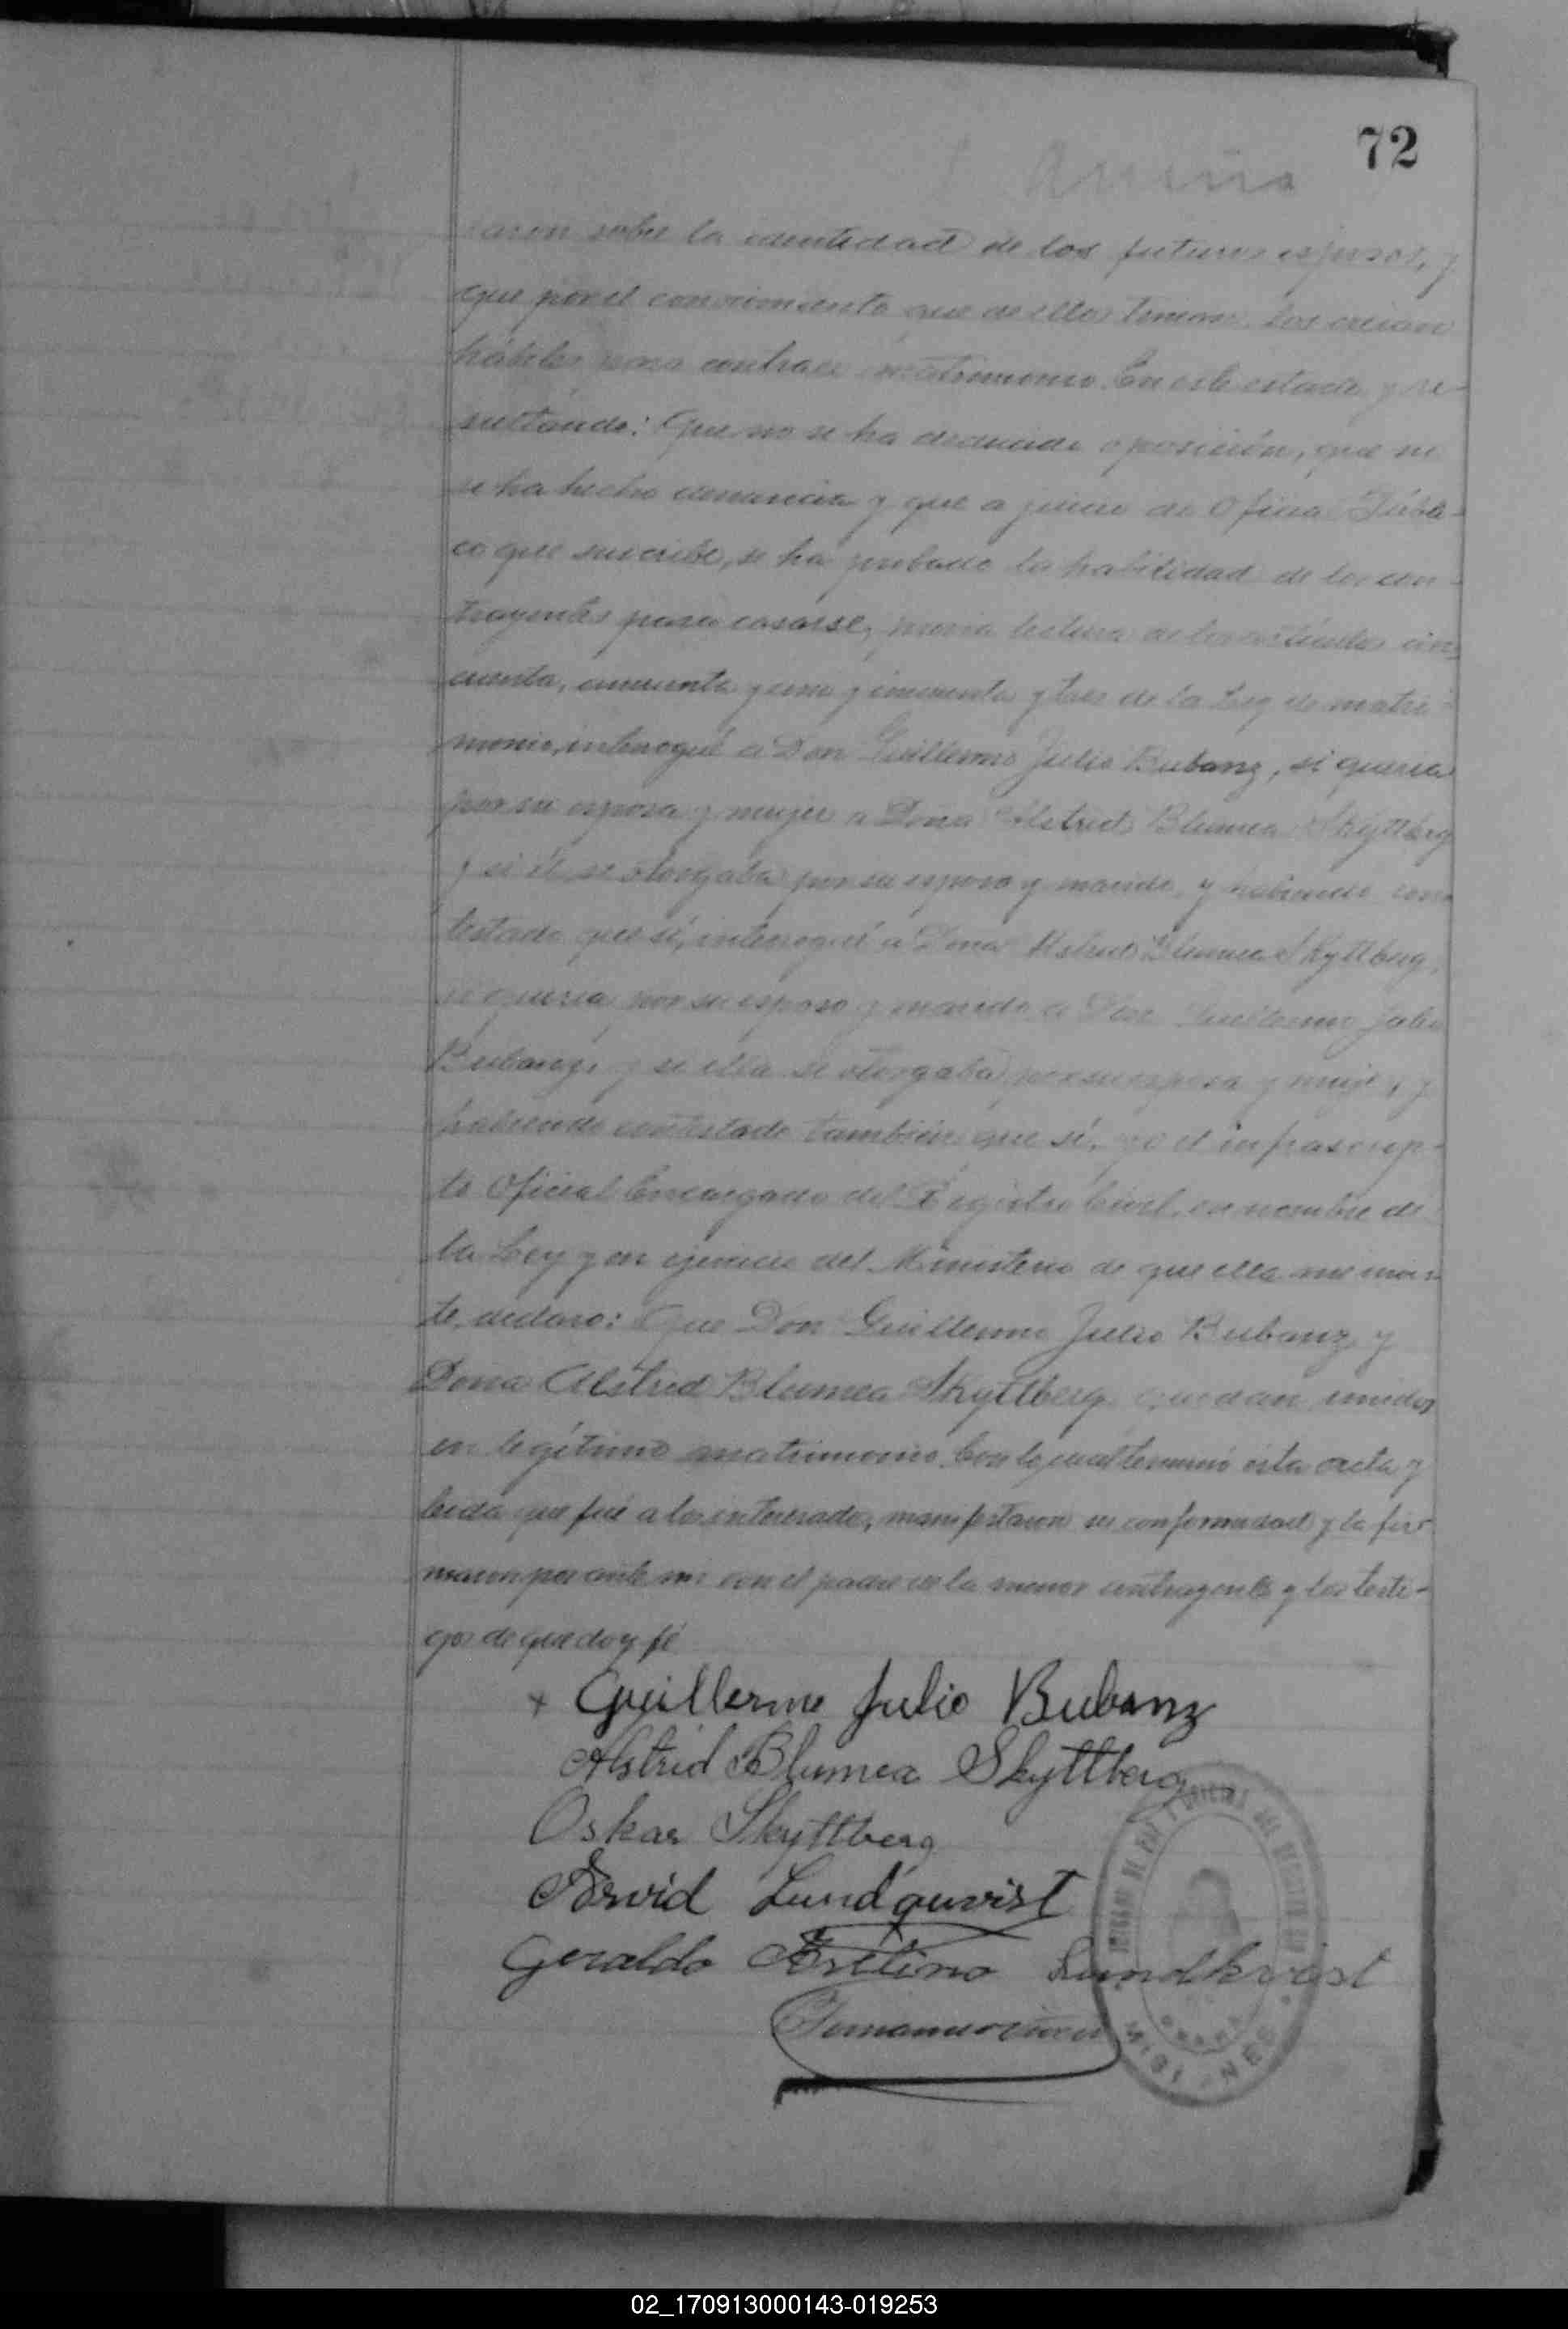 72
raron sobre la identidad de los futuros esposos, y
que por el conocimiento que de ellos tenian los creian
hábiles para contraer matrimonio. En este estado y re-
sultando: Que no se ha deducido oposición, que no
se ha hecho denuncia y que a juicio del Oficial Públi-
co que suscribe, se ha probado la habilidad de los con-
trayentes para casarse, previa lectura de los artículos cin-
cuenta, cincuenta y uno y cincuenta y tres de la Ley de matri-
monio, interrogué a Don Guillermo Julio Bubanz, si queria
por su esposa y mujer a Doña Astrid Blumea Skyttberg
y si él se otorgaba por su esposo y marido, y habiendo con-
testado que sí, interrogué a Doña Astrid Blumea Skyttberg,
si queria por su esposo y marido a Don Guillermo Julio
Bubanz, y si ella se otorgaba por su esposa y mujer, y
habiendo contestado también que sí, yo el infrascrip-
to Oficial Encargado del Registro Civil, en nombre de
la Ley y en ejercicio del Ministerio de que ella me invis-
te, declaro: Que Don Guillermo Julio Bubanz y
Doña Astrid Blumea Skyttberg quedan unidos
en legítimo matrimonio. Con lo cual terminó esta acta y
leida que fué a los interesados, manifestaron su conformidad y la fir-
maron por ante mi con el padre de la menor contrayente y los testi-
gos de que doy fé
+ Guillermo Julio Bubanz
Astrid Blumea Skyttberg
Oskar Skyttberg
Arvid Lundquvist
Geraldo Avelino Lundkvist
02_170913000143-019253